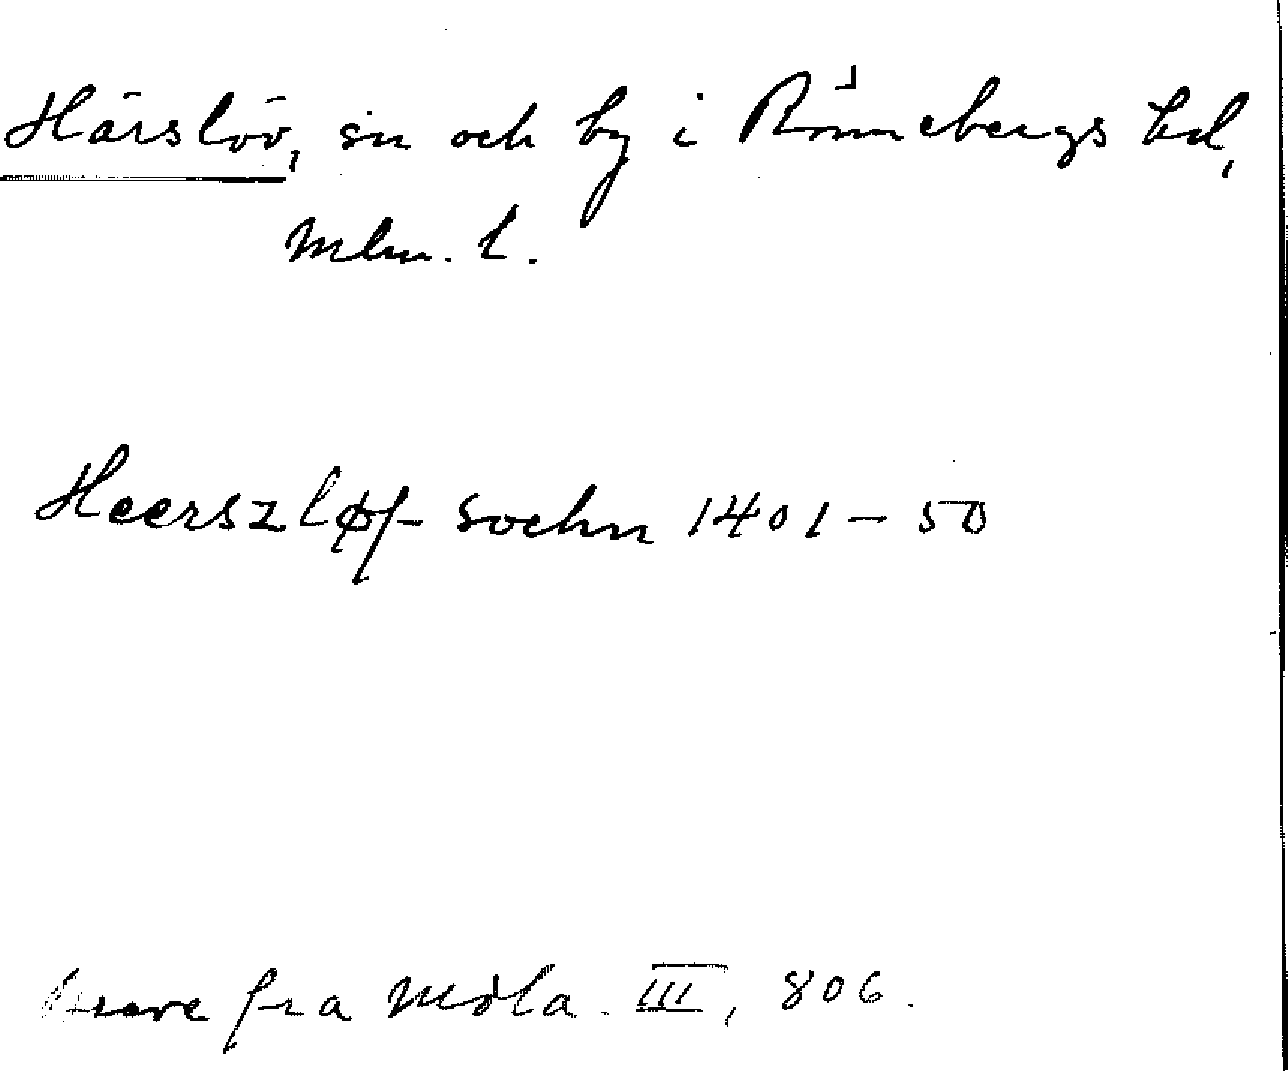 Härslöv, sn och by i Rönnebergs hd,
Mlm. l.
Heerszløf sochn 1401-50
Breve fra Mdla. III, 806.